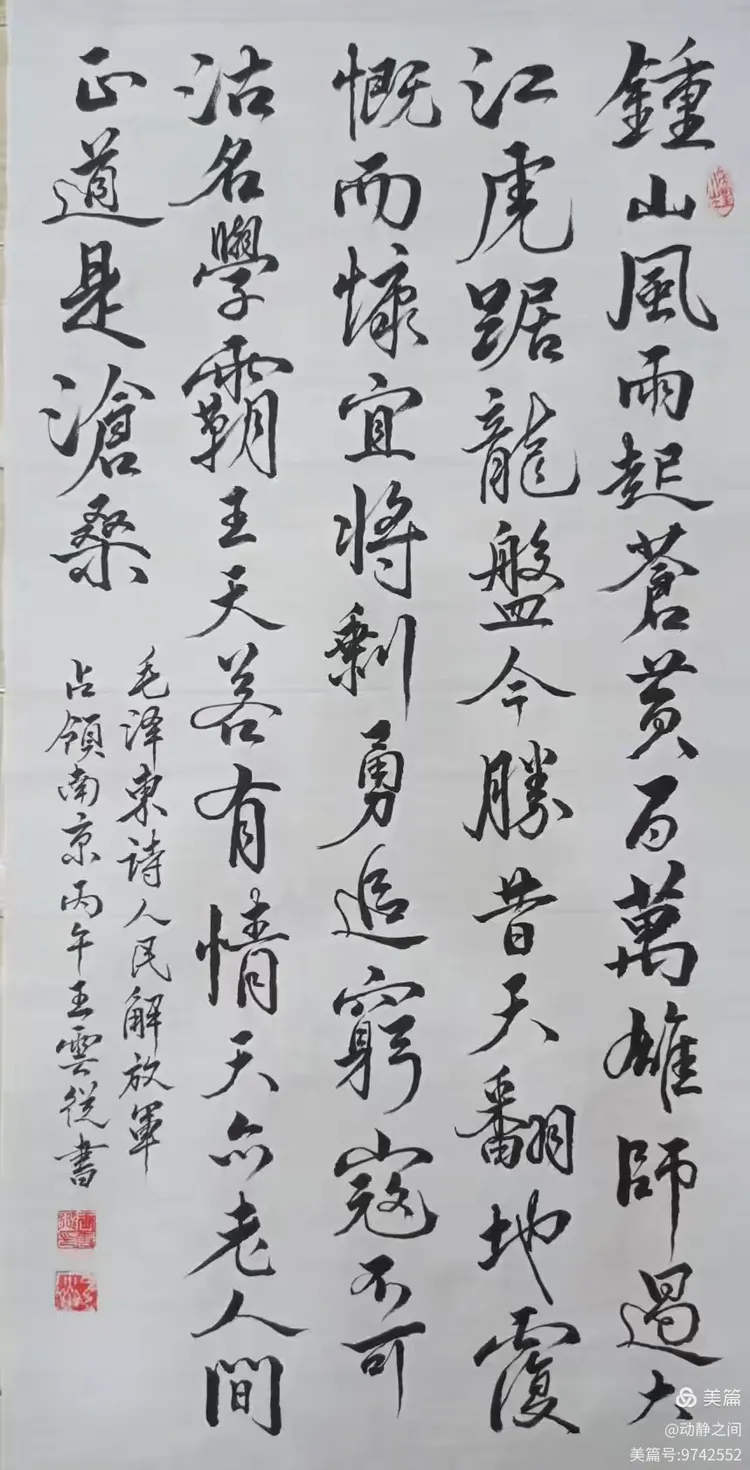 鍾山風雨起蒼黄百萬雄師過大
江虎踞龍盤今勝昔天翻地覆
慨而慷宜将剩勇追窮寇不可
沽名學霸王天若有情天亦老人間
正道是滄桑
毛泽東詩人民解放軍
占領南京丙午王雲從書
美篇
@动静之间
美篇号:9742552